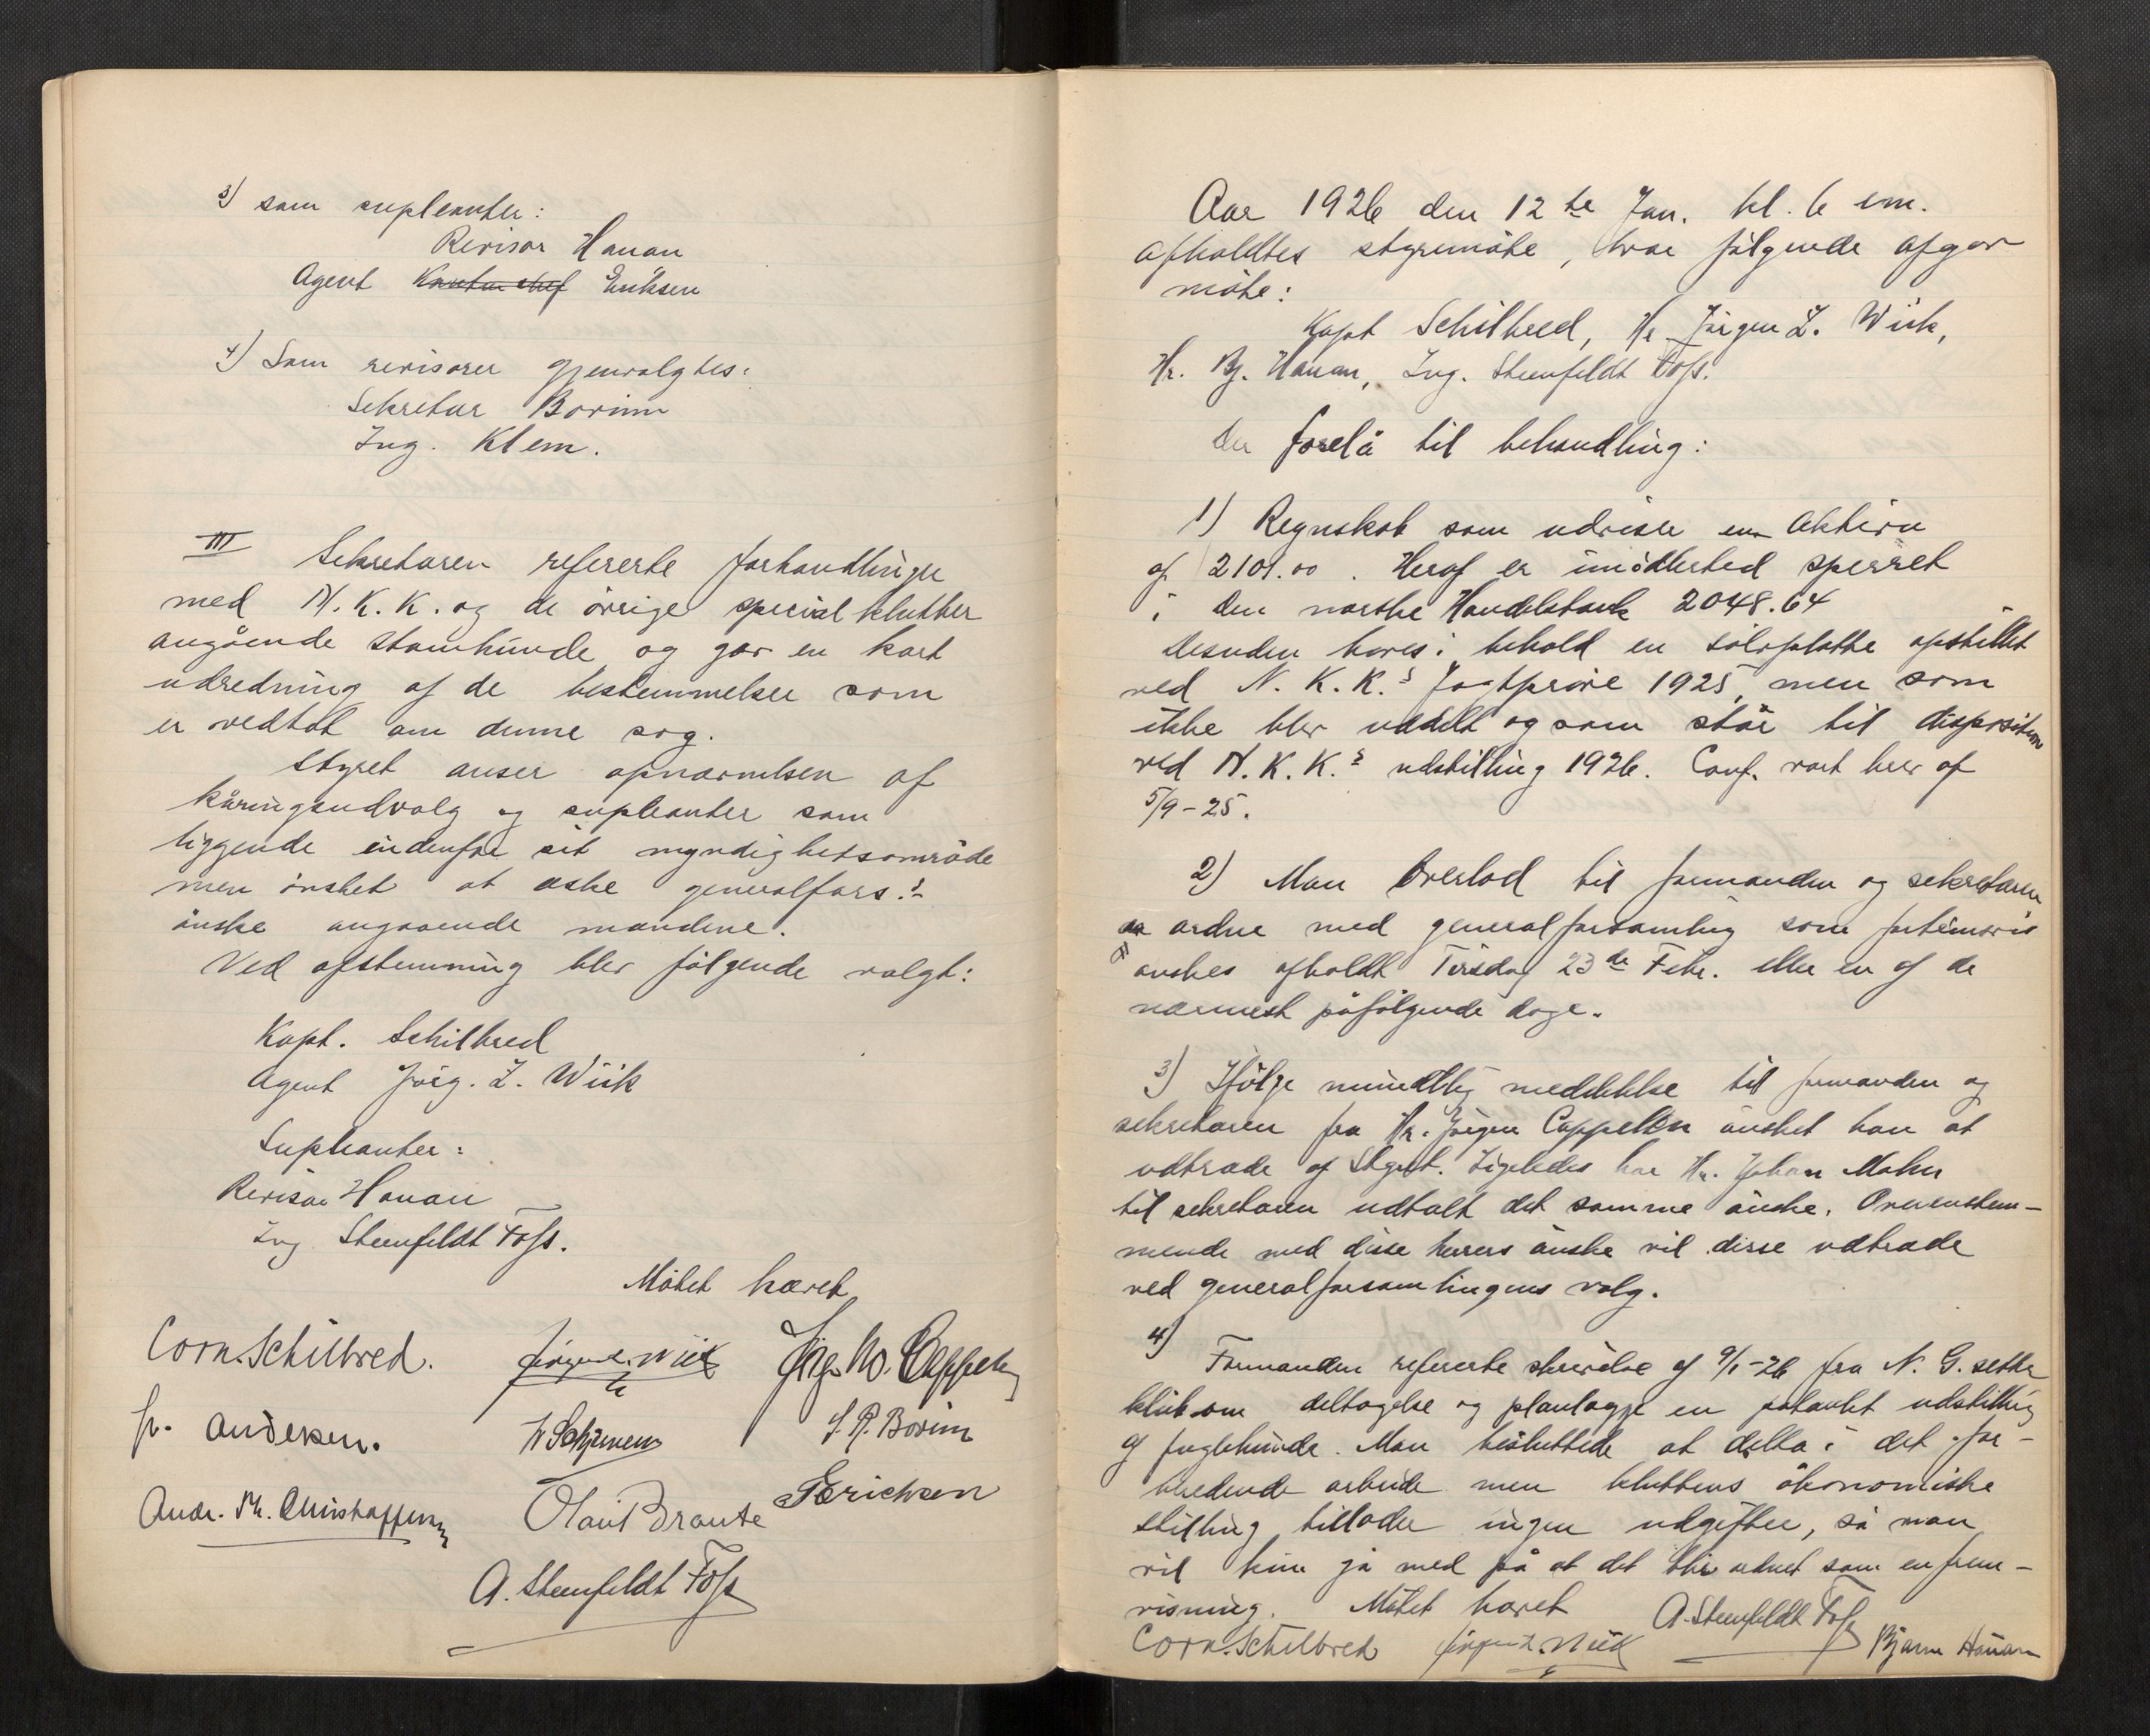 3) som supleanter:
Revisor Hanan
Agent Kontorchef Eriksen
4) Som revisorer gjenvalgtes:
Sekretær Borinn
Ing. Klem.
III Sekretæren refererte forhandlinger
med N. K. K. og de övrige specialklubber
angående stamhunde og gav en kort
udredning af de bestemmelser som
er vedtat om denne sag.
Styret anser opnævnelsen af
kåringsudvalg og supleanter som
liggende indenfor sit myndighetsområde
men önsket at æske generalfors.s
önske angaaende mændene.
Ved afstemning blev fölgende valgt:
Kapt. Schilbred
Agent Jörg. L. Wiik
Supleanter:
Revisor Hanan
Ing. Steenfeldt Foss.
Mötet hævet
Corn. Schilbred. Jörgen L. Wiik Jörg. W. Cappelen
fr. Andersen. S. R. Borinn
Andr. M. Christoffersen Olaus Braute Erichsen
A. Steenfeldt Foss
Aar 1926 den 12te Jan. kl. 6 em.
afholdtes styremöte, hvor fölgende afgav
möte:
Kapt Schilbred, Hr Jörgen L. Wiik,
Hr. Bj. Hanan, Ing. Steenfeldt Foss.
Der forelå til behandling:
1) Regnskab som udviser en Aktiva
af 2101.00. Heraf er imidlertid sperret
i den norske Handelsbank 2048.64
Desuden haves i behold en sölvplatte opstillet
ved N. K. K.s Jagtpröve 1925, men som
ikke blev uddelt og som står til disposition
ved N. K. K.s udstilling 1926. Conf. vort brev af
5/9-25.
2) Man overlod til formanden og sekretæren
at ordne med generalforsamling som fortrinsvis
önskes afholdt Tirsdag 23de Febr. eller en af de
nærmest påfölgende dage.
3) Ifölge mundtlig meddelelse til formanden og
sekretæren fra Hr. Jörgen Cappelen önsket han at
udtræde af Styret. Ligeledes har Hr. Johan Mohn
til sekretæren udtalt det samme önske. Overenstem-
mende med disse herrers önske vil disse udtræde
ved generalforsamlingens valg.
4)
Formanden refererte skrivelse af 9/1-26 fra N. G. setter
klub om deltagelse og planlægge en påtænkt udstilling
af fuglehunde. Man besluttede at delta i det for-
beredende arbeide men klubbens ökonomiske
stilling tillader ingen udgifter, så man
vil kun gå med på at det blir ordnet som en frem-
visning. Mötet hævet A. Steenfeldt Foss
Corn. Schilbred Jörgen L. Wiik Bjarne Hanan